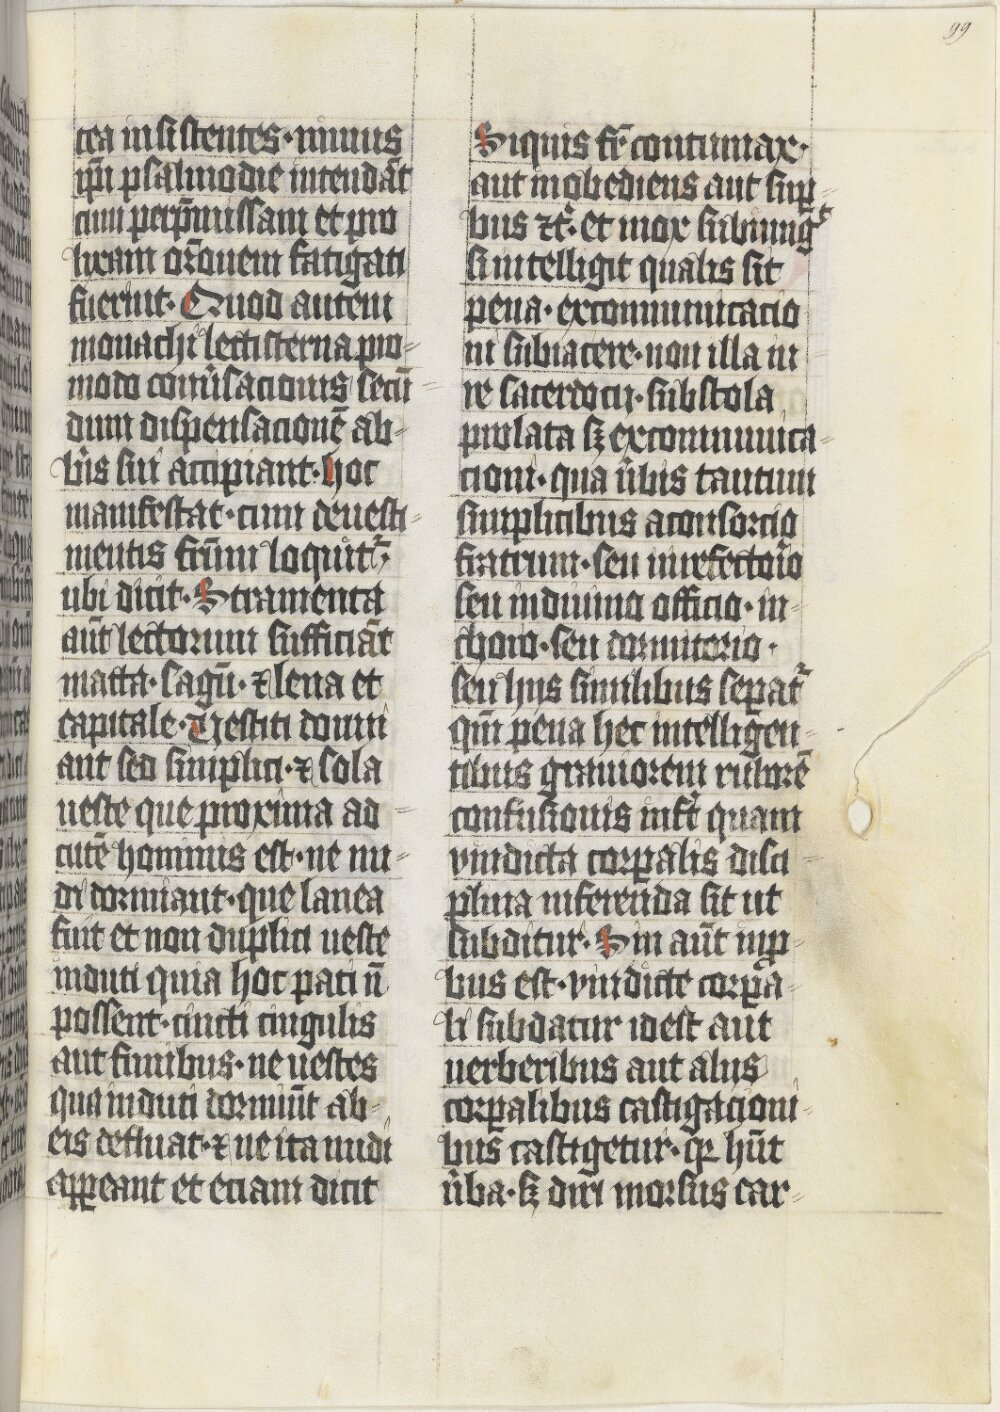 99
tea insistentes· minus
ip̄i psalmodie intendāt
cum perp̄missam et pro
lixam or̄onem fatigati
fuerint· Quod autem
monachi lectisterna pro-
modo conūsacionis secū
dum dispensacionē ab-
b̄is sui accipiant· hoc
manifestat· cum de uesti-
mentis fr̄um loquit᷑
ubi dicit· Stramenta
aūt lectorum sufficiāt
matta· sagū· ⁊ lena et
capitale· Uestiti dormi
ant sed simplici· ⁊ sola
ueste que proxima ad
cutē hominis est· ne nu-
di dormiant· que lanea
fuit et non duplici ueste
induti quia hoc pati n̄
possent· cincti cingulis
aut funibus· ne uestes
qua induti dormiūt ab-
eis defluat· ⁊ ne ita nudi
appeant et eciam dicit
Siquis fr̄ contumax·
aut inobediens aut sup̱-
bus ⁊c̄· et mox subiung᷑
si intelligit qualis sit
pena· excommunicacio
ni subiacere· non illa iu
re sacerdocij· sub stola
prolata sꝫ excommunica-
cioni· qua ūbis tantum
simplicibus a consorcio
fratrum· seu in refectoīo
seu in diuino officio· in-
choro· seu dormitorio·
seu hijs similibus separat᷑
qm̄ pena hec intelligen-
tibus grauiorem rub̄orē
confusionis infert quam
vindicta corp̱alis disci-
plina inferenda sit ut
subditur· Sin aūt inp̱-
bus est· vindicte corp̱a-
li subdatur id est aut
uerberibus aut alijs
corp̱alibus castigacioni-
bus castigetur· qr hūt
ūba· sꝫ diri morsus car-